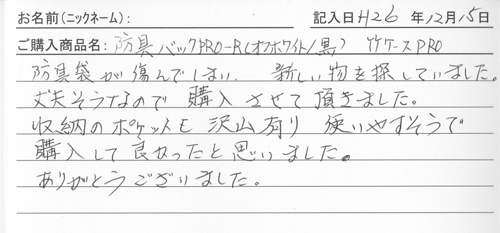 お名前(ニックネーム): 記入日H26年12月15日
ご購入商品名: 防具バックPRO-R(オフホワイト/黒) 竹ケースPRO
防具袋が傷んでしまい 新しい物を探していました。
丈夫そうなので 購入させて頂きました。
収納のポケットも 沢山有り 使いやすそうで
購入して良かったと思いました。
ありがとうございました。